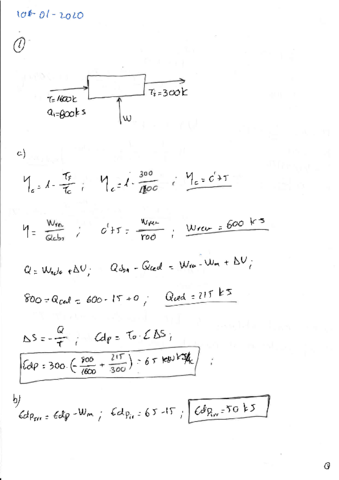 10A-01-2020
①
T=1600K
Q₁=800kJ
T_F=300K
W
c)
η_c = 1 - T_F/T_C ; η_c = 1 - 300/1200 ; η_c = 0'75
η = W_rev/Q_abs ; 0'75 = W_rev/800 ; W_rev = 600 kJ
Q = W_todo + ΔU ; Q_abs - Q_ced = W_rev - W_m + ΔU ;
800 - Q_ced = 600 - 15 + 0 ; Q_ced = 215 kJ
ΔS = -Q/T ; Edp = T₀·ΣΔS ;
Edp = 300·(-800/1600 + 215/300) = 65
b)
Edp_irr = Edp - W_m ; Edp_irr = 65 - 15 ; Edp_irr = 50 kJ